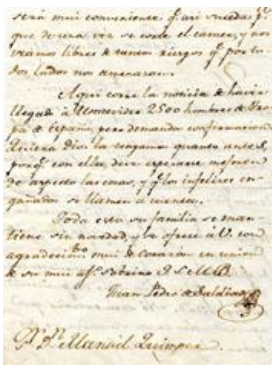 será mui conveniente q.e asi suceda p.a
que de una vez se corte el cancer, y nos
veamos libres de tantos riesgos q.e por to-
dos lados nos amenazan.
Aqui corre la noticia de haver
llegado à Montevideo 2500 hombres de tro-
pa de España, pero demanda confirmacion
Quiera Dios la tengamos quanto antes,
porq.e con ellos, deve esperarse mejoren
de aspecto las cosas, y q.e los infelices en-
gañados se llamen a cuentas.
Toda esta su familia se man-
tiene sin novedad, y se ofrece à V. con
agradecim.to mui de corazon en union
de su mui af.to Sobrino Q. S. M. B.
Juan Pedro de
S.r D.n Manuel Quimper